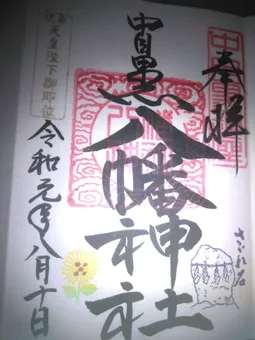 奉拝
中目黒
八幡神社
さざれ石
天皇陛下御即位
令和元年八月十日